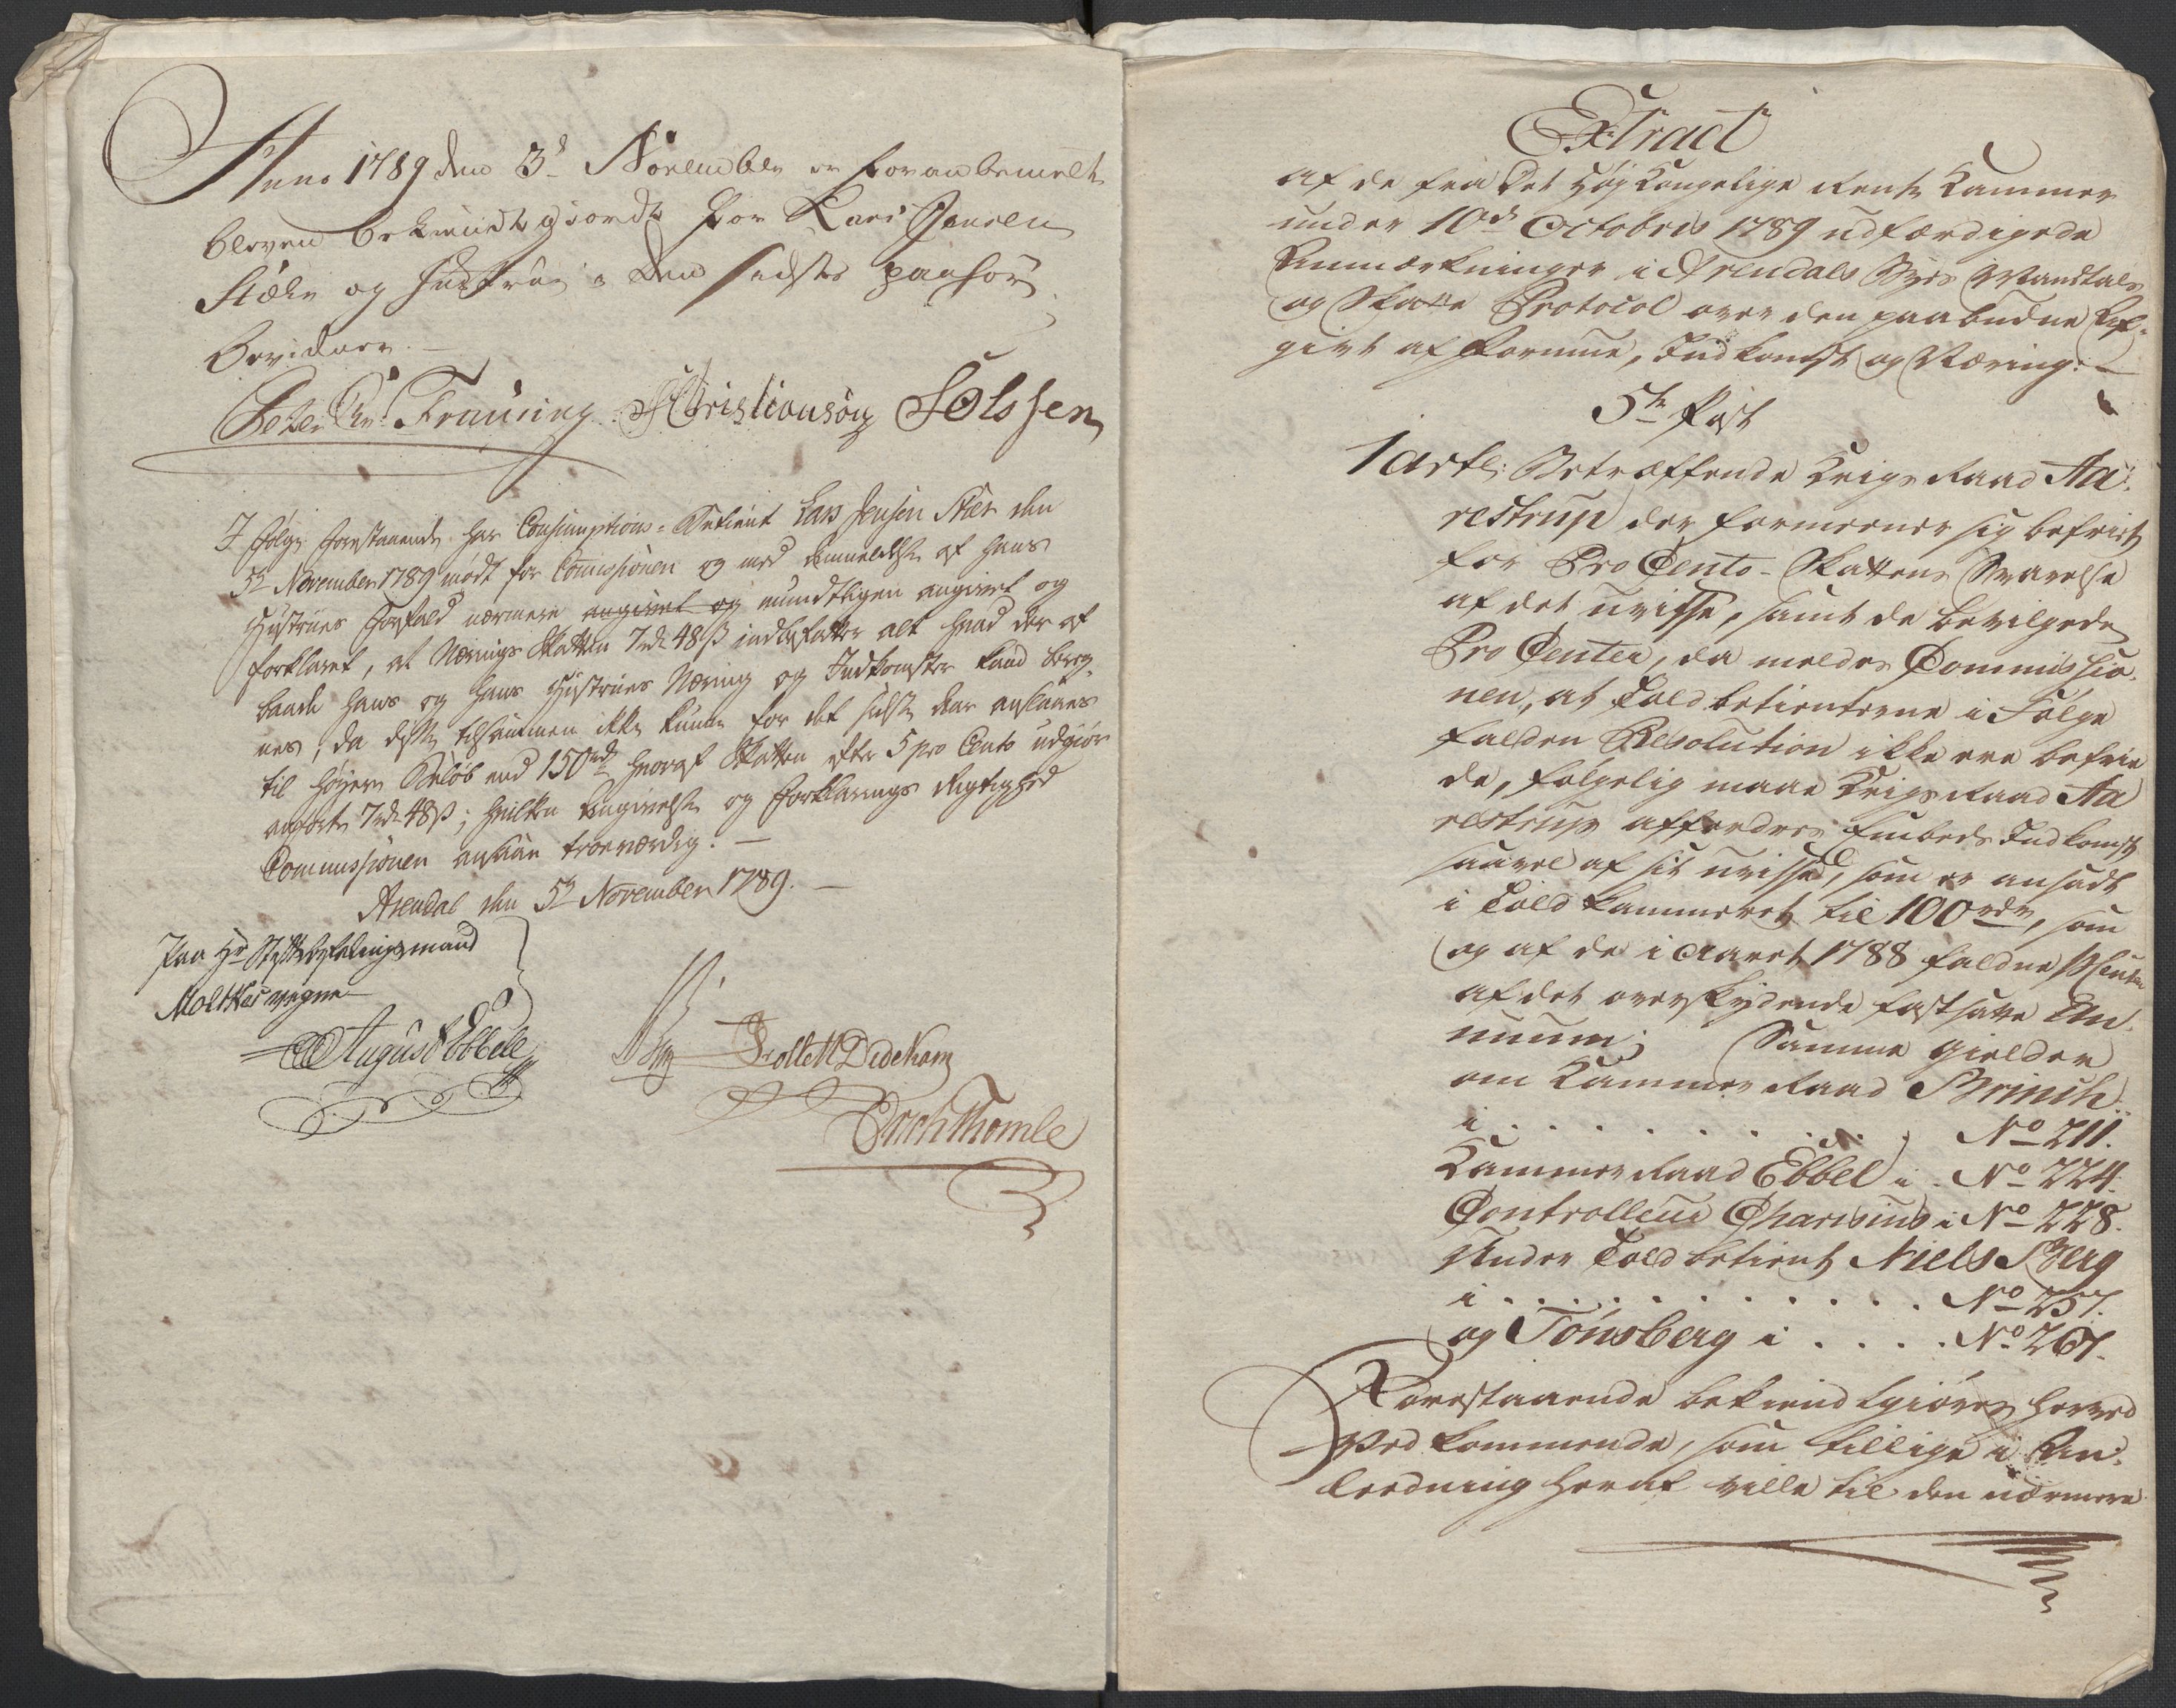 Anno 1789 den 3d November er foranbemelte
bleven bekiendtgiordt for Lars Jensen
Skier og Hustrue i den sidstes paahør
bevidner.
Peter Chr: Franing Christiansøn J Olssen
I følge forestaaende har Consumptions-Betient Lars Jensen Skier den
5te November 1789 mødt for Commissionen og med Anmeldelse af hans
Hustrues Forfald nærmere angivet og mundtligen angivet og
forklaret, at Nærings Skatten 7rd 48 ß indbefatter alt hvad der af
baade hans og hans Hustrues Næring og Indkomster kand bereg-
nes, da disse tilsammen ikke kunne for det sidste Aar ansees
til høyere Beløb end 150rd hvoraf Skatten efter 5 pro Cento udgiør
anførte 7rd 48ß; hvilken Angivelse og Forklarings Rigtighed
Commissionen ansaae troeværdig. —
Arendal den 5te November 1789. —
Paa Hr Stiftbefalingsmand
Moltkes vegne
August Ebbell
Tollef Dedekam
Erich Thomle
Extract
af de fra Det Høy Kongelige Rente Kammer
under 10de Octobris 1789 udfærdigede
Anmærkninger i Arendals Byes Mandtals
og Skatte Protocol over den paabudne Af-
givt af Formue, Indkomst og Næring. —
5te Post
1 artl: Betræffende Krigs Raad Aa-
restrup der formeener sig befriet
for Pro Cento-Skattens Svarelse
af det uvisse, samt de bevilgede
Pro Center, da meldes Commissio-
nen, at Toldbetienterne i Følge
falden Resolution ikke ere befrie
de, følgelig maae Krigs Raad Aa
restrup affordres Embeds Indkomst
saavel af sit uvisse, som er ansadt
i Toldkammeret til 100rdr, som
og af de i Aaret 1788 faldne PCenter
af det overskydende fastsatte An-
nuum; Samme gielder
om Kammer Raad Brinch
i . . . . . . . . . . . No 211.
Kammer Raad Ebbel i . No 224.
Controlleur Charisius i No 228.
Under Toldbetient Niels Berg
i . . . . . . . . . . . No 257.
og Tønsberg i . . . . No 267.
Forestaaende bekiendtgiøres herved
Vedkommende, som tillige i An-
ledning heraf ville til den nærmere